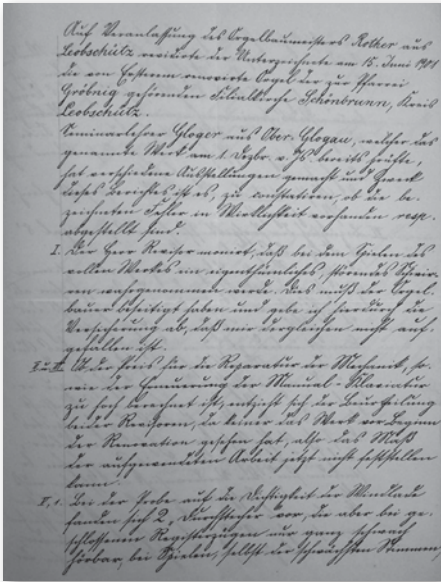 Auf Veranlassung des Orgelbaumeisters Rother aus
Leobschütz revidirte der Unterzeichnete am 15. Juni 1901
die von Ersterem renovirte Orgel der zur Pfarrei
Gröbnig gehörenden Filialkirche Schönbrunn, Kreis
Leobschütz.
Seminarlehrer Gloger aus Ober-Glogau, welcher das
genannte Werk am 1. Dezbr. v. Js. bereits prüfte,
hat verschiedene Ausstellungen gemacht und Zweck
dieses Berichtes ist es, zu constatiren, ob die be-
zeichneten Fehler in Wirklichkeit vorhanden resp.
abgestellt sind.
I. Der Herr Revisor monirt, daß bei dem Spielen des
vollen Werkes ein eigenthümliches, störendes Schwir-
ren wahrgenommen werde. Dies muß der Orgel-
bauer beseitigt haben und gebe ich hierdurch die
Versicherung ab, daß mir dergleichen nicht auf-
gefallen ist.
Ob der Preis für die Reparatur der Mechanik, so-
wie der Erneuerung der Manual-Klaviatur
zu hoch berechnet ist, entzieht sich der Beurtheilung
beider Revisoren, da keiner das Werk vor Beginn
der Renovation gesehen hat, also das Maß
der aufgewendeten Arbeit jetzt nicht feststellen
kann.
II, 1. Bei der Probe auf die Dichtigkeit der Windlade
fanden sich 2 Durchstecher vor, die aber bei ge-
schlossenen Registerzügen nur ganz schwach
hörbar, bei Spielen, selbst der schwächsten Stimmen,